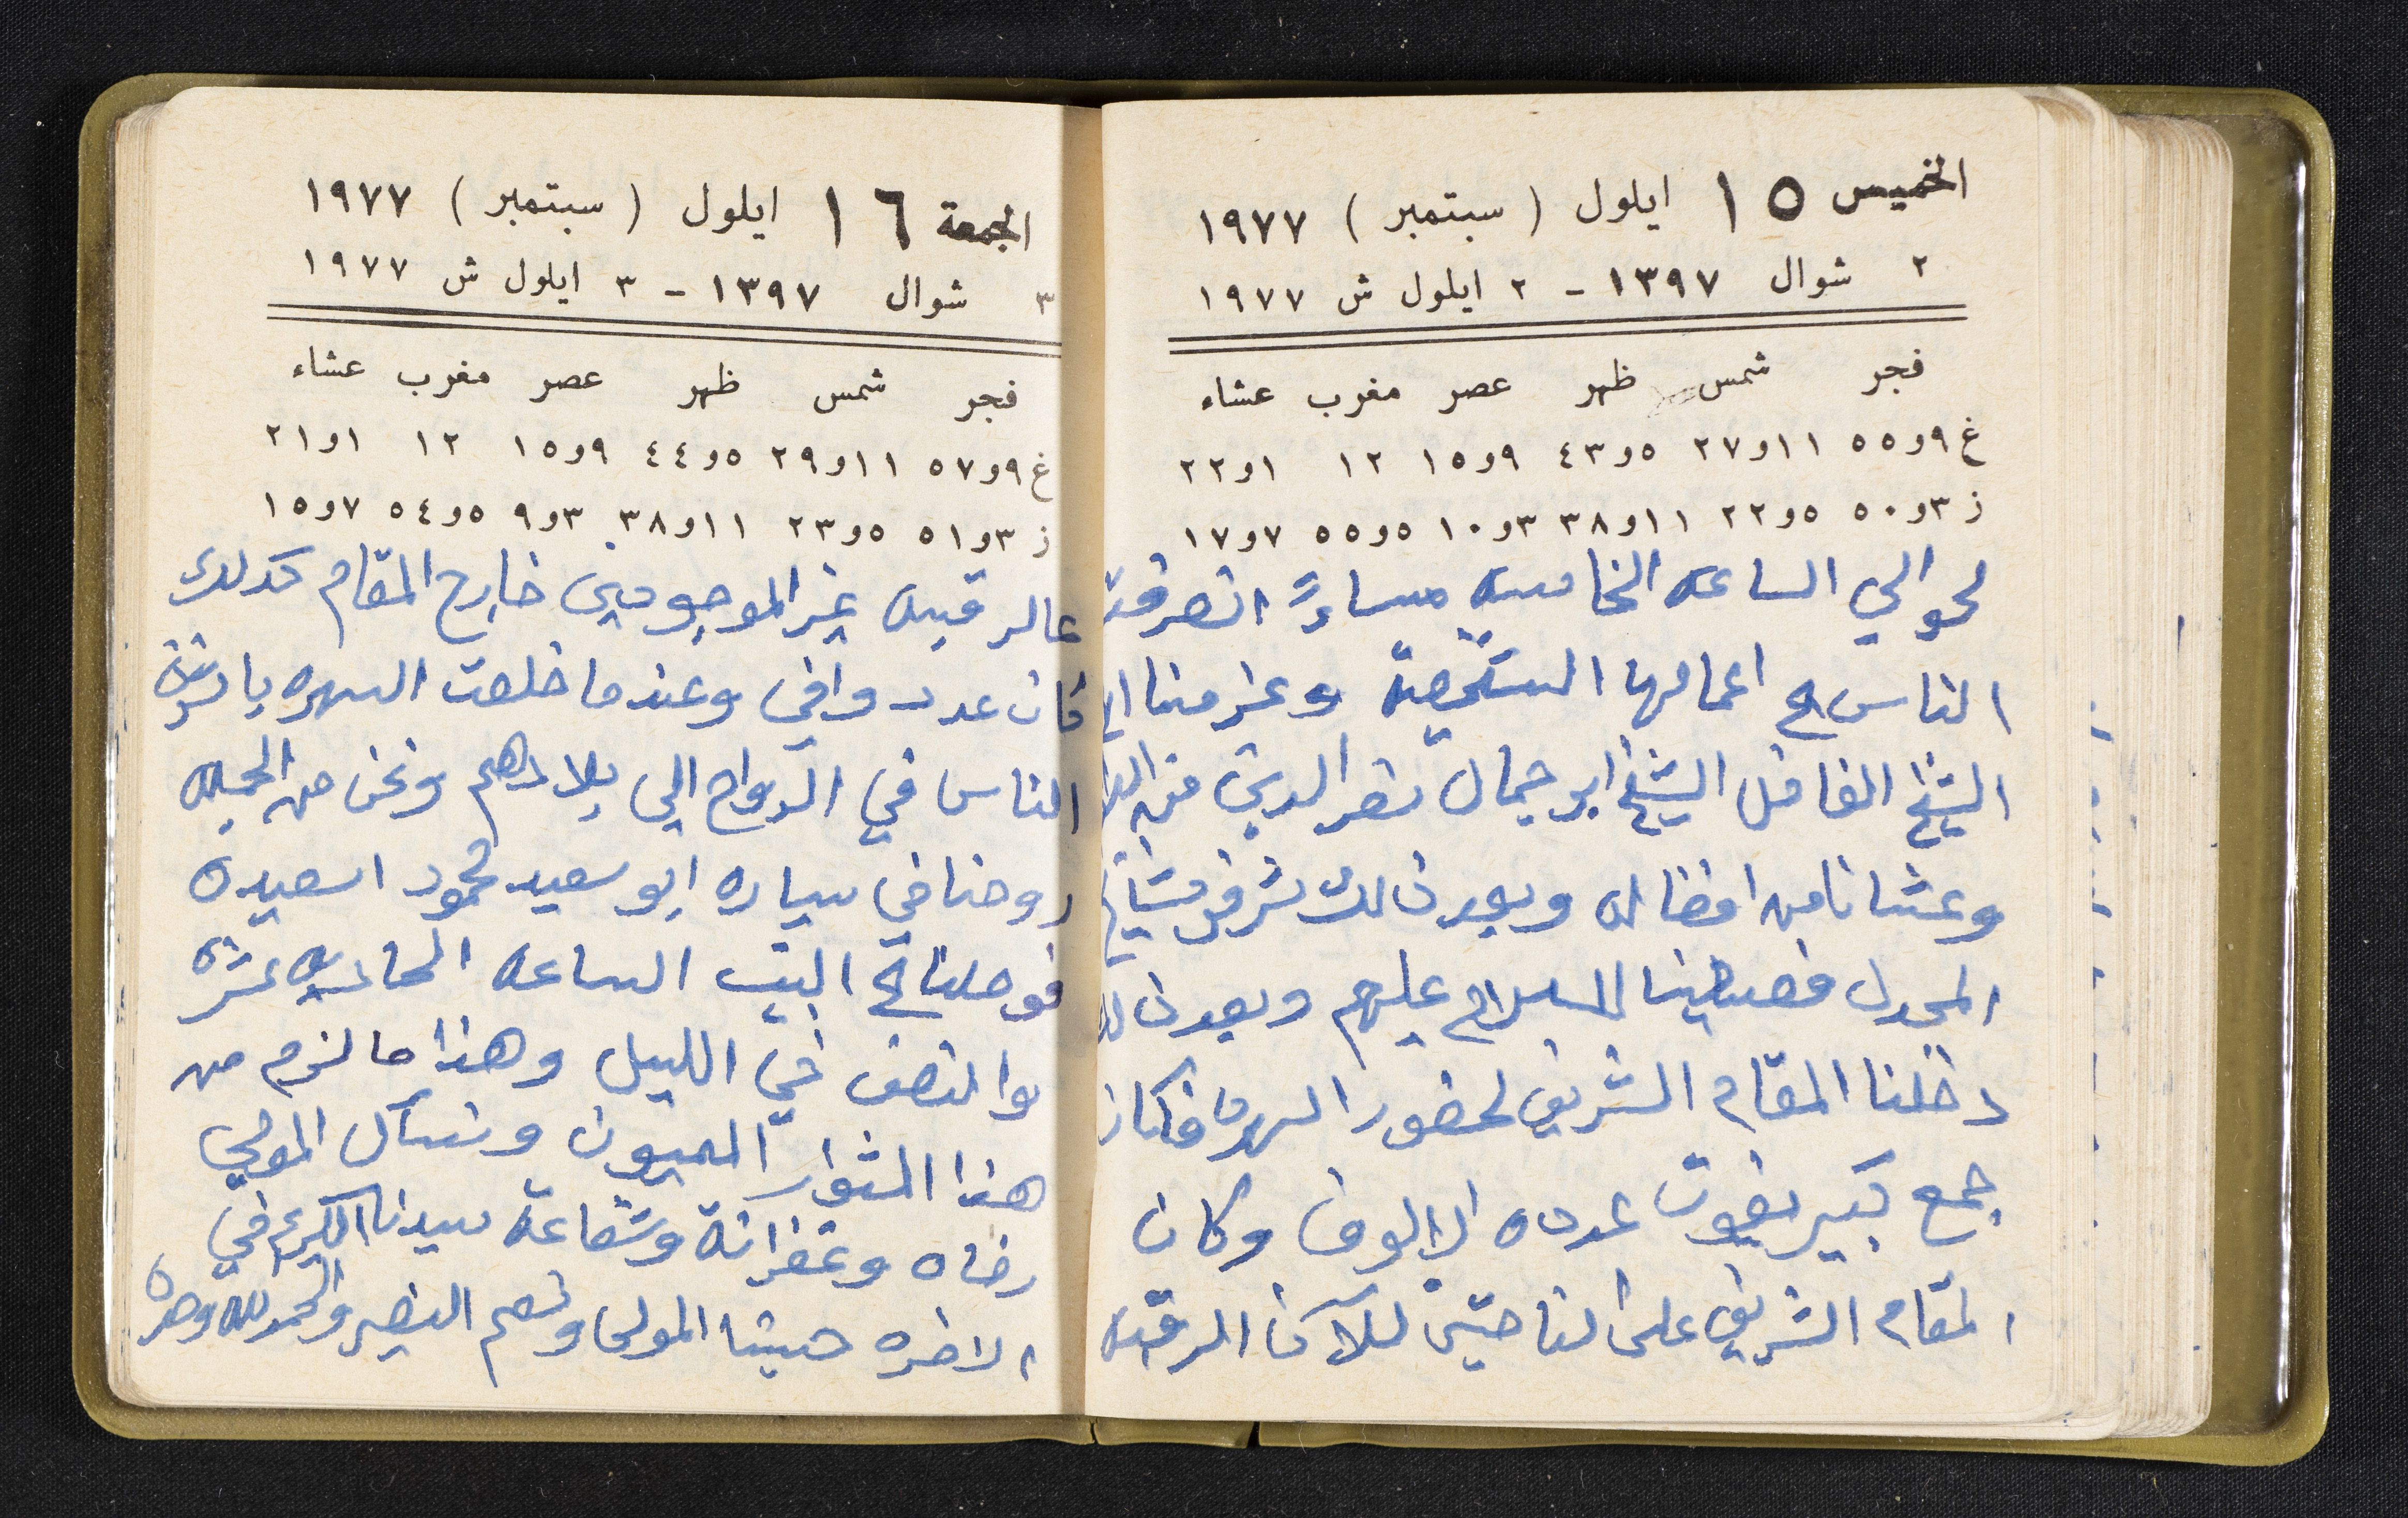 الخميس ١٥ ايلول ( سبتمبر ) ١٩٧٧
٢ شوال ١٣٩٧ - ٢ ايلول ش ١٩٧٧
فجر شمس ظهر عصر مغرب عشاء
غ ٩و٥٥ ١١و٢٧ ٥و٤٣ ٩و١٥ ١٢ ١و٢٢
ز ٣و٥٠ ٥و٢٢ ١١و٣٨ ٣و١٠ ٥و٥٥ ٧و١٧
لحوالي الساعه الخامسه مساءً انصرفت
الناس اعمالها الشخصية وعزمنا
الشيخ الفاضل الشيخ ابو جمال نصر الدين من
وعشانا من افضاله وبعد ذلك شرفو مشايخ
المجدل فصطفينا السلام عليهم وبعد ذلك
دخلنا المقام الشريف لحضور السهره فكان
جمع كبير يفوت عدده الالوف وكان
المقام الشريف على لنا حتى للآن الرقبه
الجمعة ١٦ ايلول ( سبتمبر ) ١٩٧٧
٣ شوال ١٣٩٧ - ٣ ايلول ش ١٩٧٧
فجر شمس ظهر عصر مغرب عشاء
غ ٩و٥٧ ١١و٢٩ ٥و٤٤ ٩و١٥ ١٢ ١و٢١
ز ٣و٥١ ٥و٢٣ ١١و٣٨ ٣و٩ ٥و٥٤ ٧و١٥
عالرقبه غير الموجودين خارج المقام كذلك
كان عدد وافي وعندما خلصت السهره باشرت
الناس في الرواح الي بلادهم ونحن من الجمله
روحنا في سياره ابو سعيد محمود اسعيده
فوصلنا البيت الساعه الحاديه عشره
والنصف في الليل وهذا ما لزم من
هذا المشوار الميمون ونسأل المولى
رضاه وغفرانة وشفاعة سيدنا الكريم في
الاخره حسبنا المولى ونعم النصير والحمد لله وحده